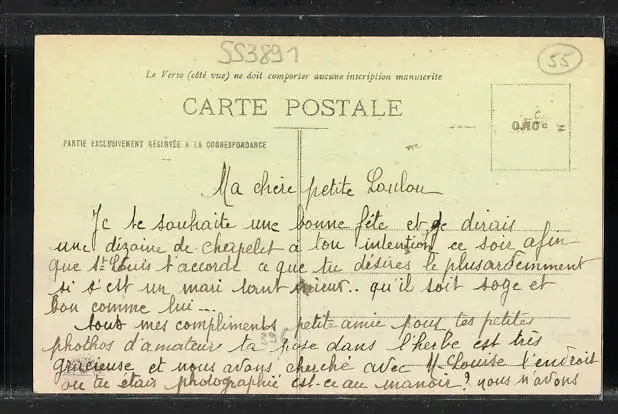 553891
55
Le Verso (côté vue) ne doit comporter aucune inscription manuscrite
CARTE POSTALE
PARTIE EXCLUSIVEMENT RÉSERVÉE A LA CORRESPONDANCE
Ma chère petite Loulou
Je te souhaite une bonne fête et je dirais
une dizaine de chapelet à ton intention ce soir afin
que St Louis t'accorde ce que tu désires le plus ardemment
si s'est un mari tant mieux.. qu'il soit sage et
bon comme lui...
tous mes compliments petite amie pour tes petites
phothos d'amateurs ta pose dans l'herbe est très
gracieuse et nous avons cherché avec M-Louise l'endroit
ou tu étais photographié est-ce au manoir? nous n'avons